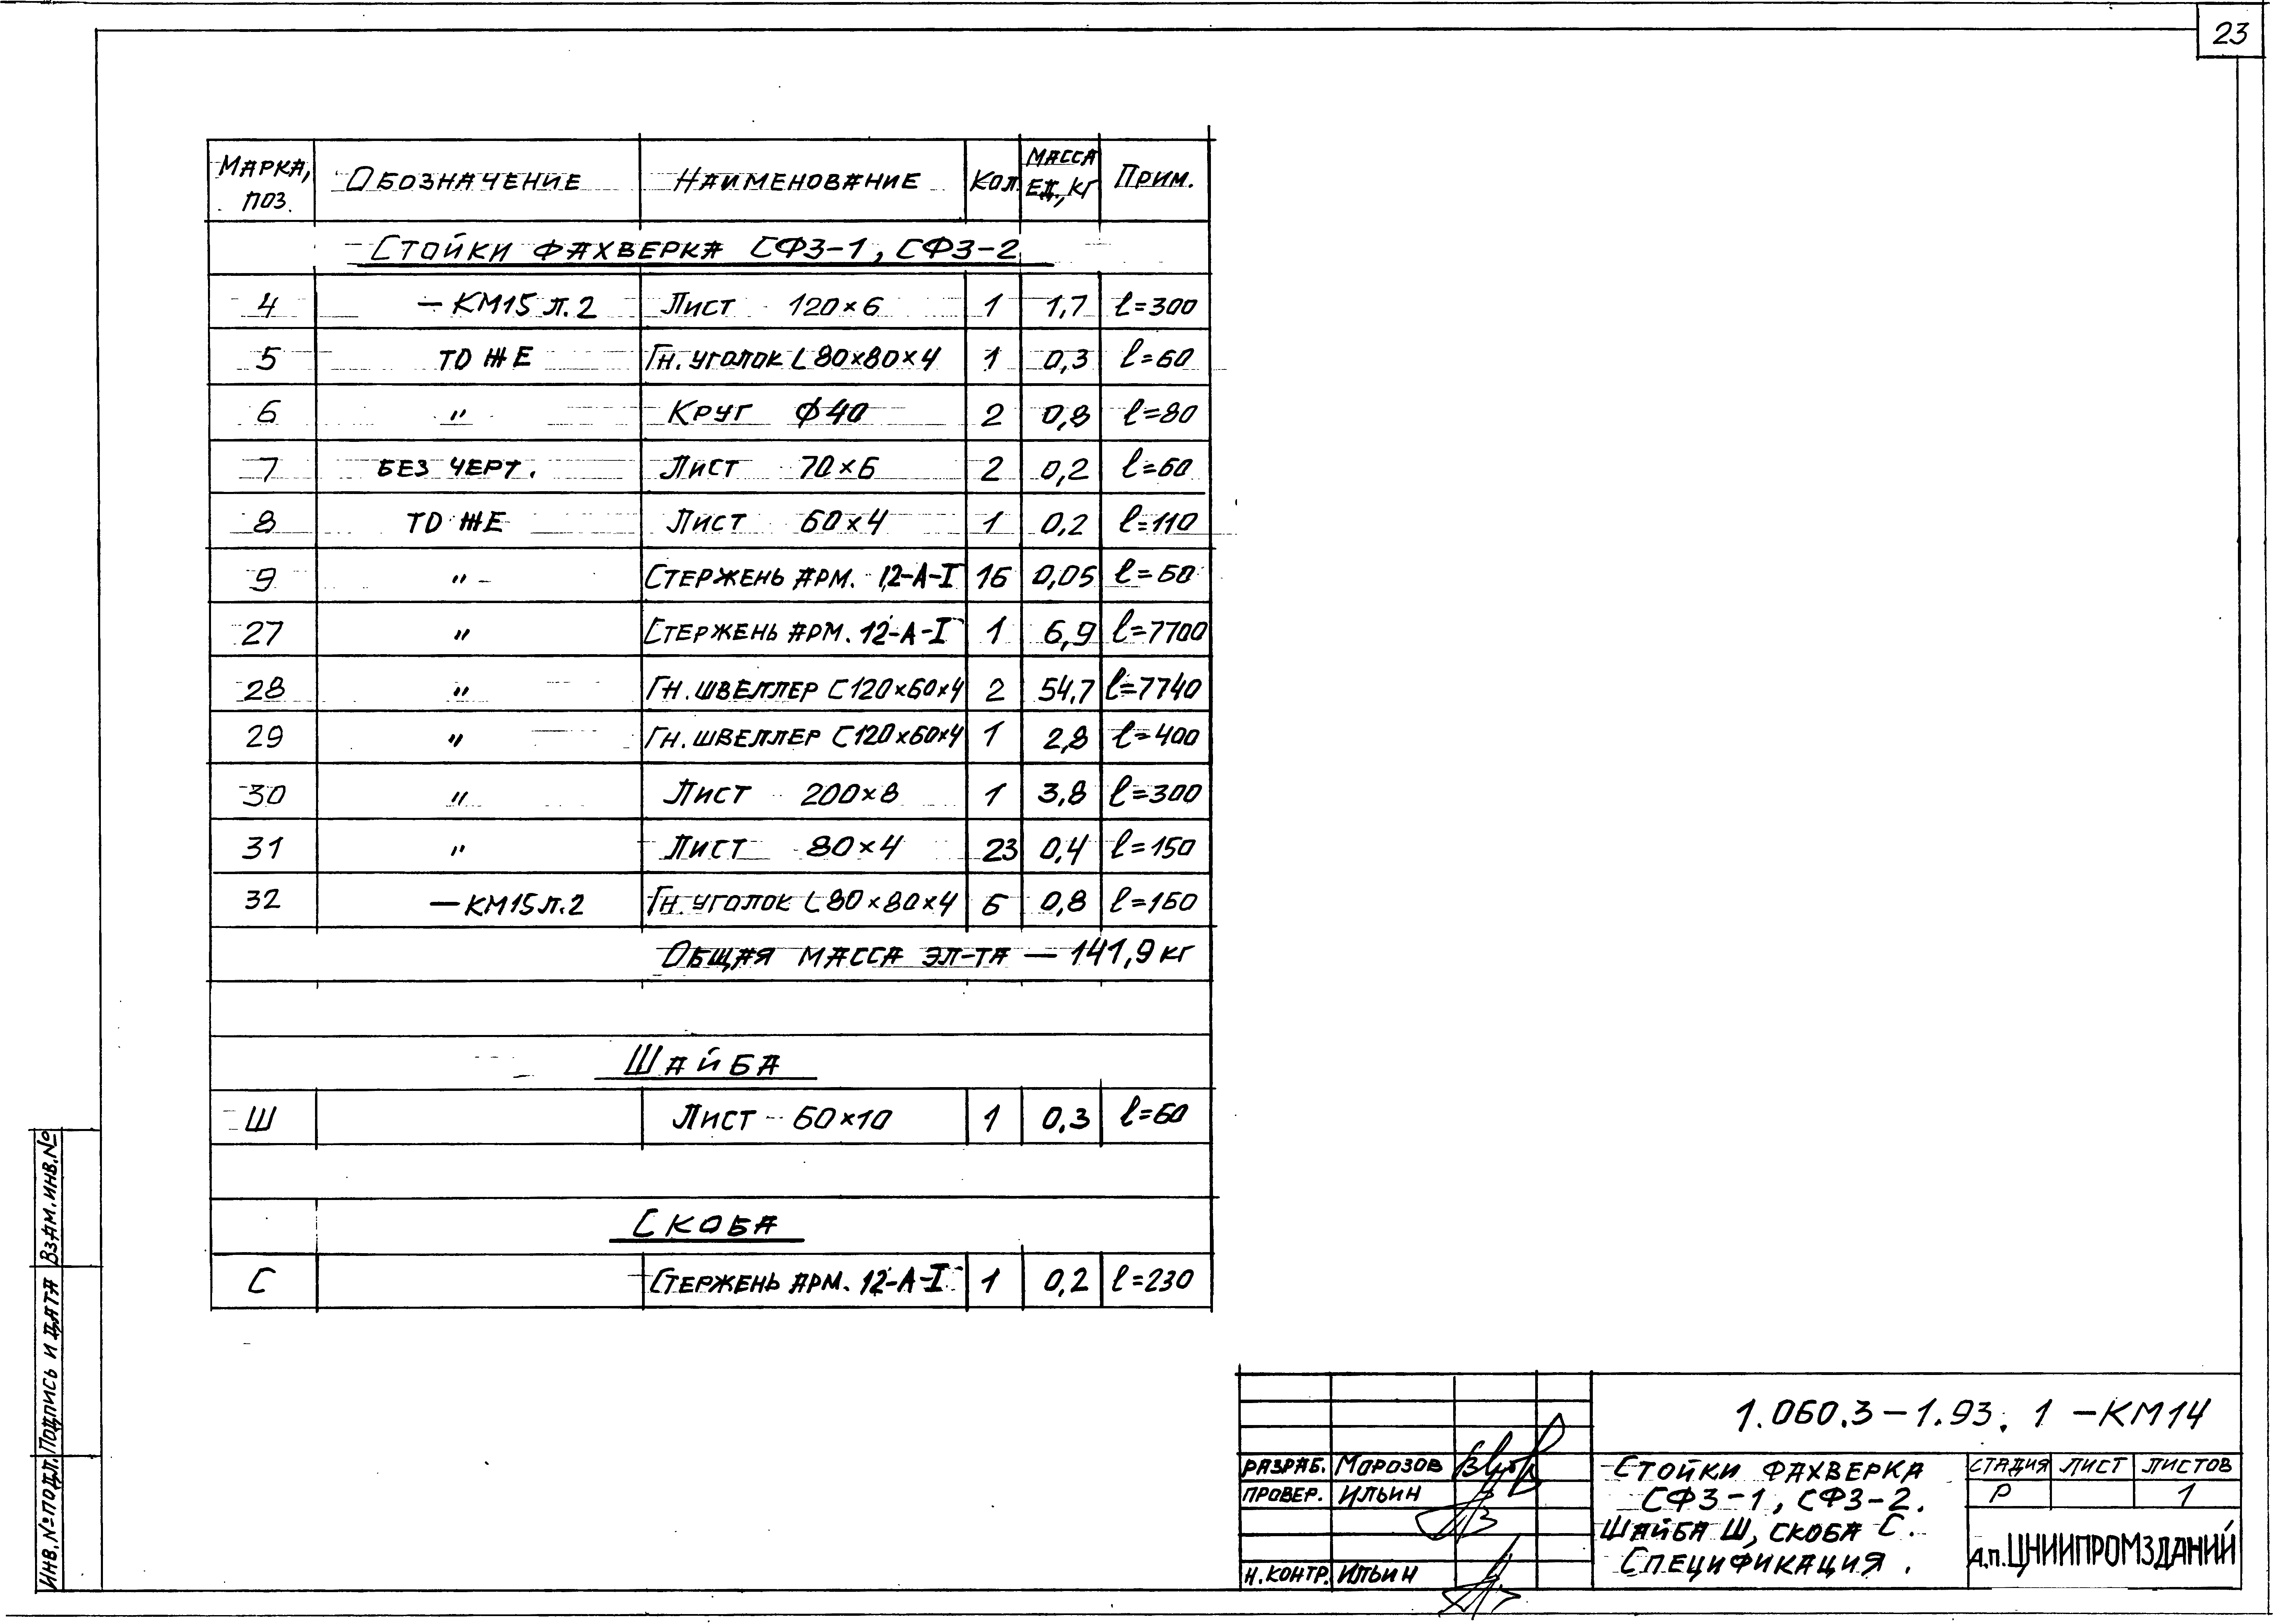 23
МАРКА, ПОЗ. ОБОЗНАЧЕНИЕ НАИМЕНОВАНИЕ КОЛ. МАССА ЕД., КГ ПРИМ.
СТОЙКИ ФАХВЕРКА СФ3-1, СФ3-2
4 — КМ15 Л.2 ЛИСТ 120×6 1 1,7 ℓ=300
5 ТО ЖЕ ГН. УГОЛОК L 80×80×4 1 0,3 ℓ=60
6 " КРУГ ϕ40 2 0,8 ℓ=80
7 БЕЗ ЧЕРТ. ЛИСТ 70×6 2 0,2 ℓ=60
8 ТО ЖЕ ЛИСТ 60×4 1 0,2 ℓ=110
9 " СТЕРЖЕНЬ АРМ. 12-А-I 16 0,05 ℓ=60
27 " СТЕРЖЕНЬ АРМ. 12-А-I 1 6,9 ℓ=7700
28 " ГН. ШВЕЛЛЕР С 120×60×4 2 54,7 ℓ=7740
29 " ГН. ШВЕЛЛЕР С 120×60×4 1 2,8 ℓ=400
30 " ЛИСТ 200×8 1 3,8 ℓ=300
31 " ЛИСТ 80×4 23 0,4 ℓ=150
32 — КМ15 Л.2 ГН. УГОЛОК L 80×80×4 6 0,8 ℓ=160
ОБЩАЯ МАССА ЭЛ-ТА — 141,9 КГ
ШАЙБА
Ш ЛИСТ 60×10 1 0,3 ℓ=60
СКОБА
С СТЕРЖЕНЬ АРМ. 12-А-I 1 0,2 ℓ=230
ИНВ. № ПОДЛ. ПОДПИСЬ И ДАТА ВЗАМ. ИНВ. №
1.060.3-1.93.1 -КМ14
РАЗРАБ. МОРОЗОВ
ПРОВЕР. ИЛЬИН
Н. КОНТР. ИЛЬИН
СТОЙКИ ФАХВЕРКА
СФ3-1, СФ3-2.
ШАЙБА Ш, СКОБА С.
СПЕЦИФИКАЦИЯ.
СТАДИЯ ЛИСТ ЛИСТОВ
Р 1
А.П. ЦНИИПРОМЗДАНИЙ